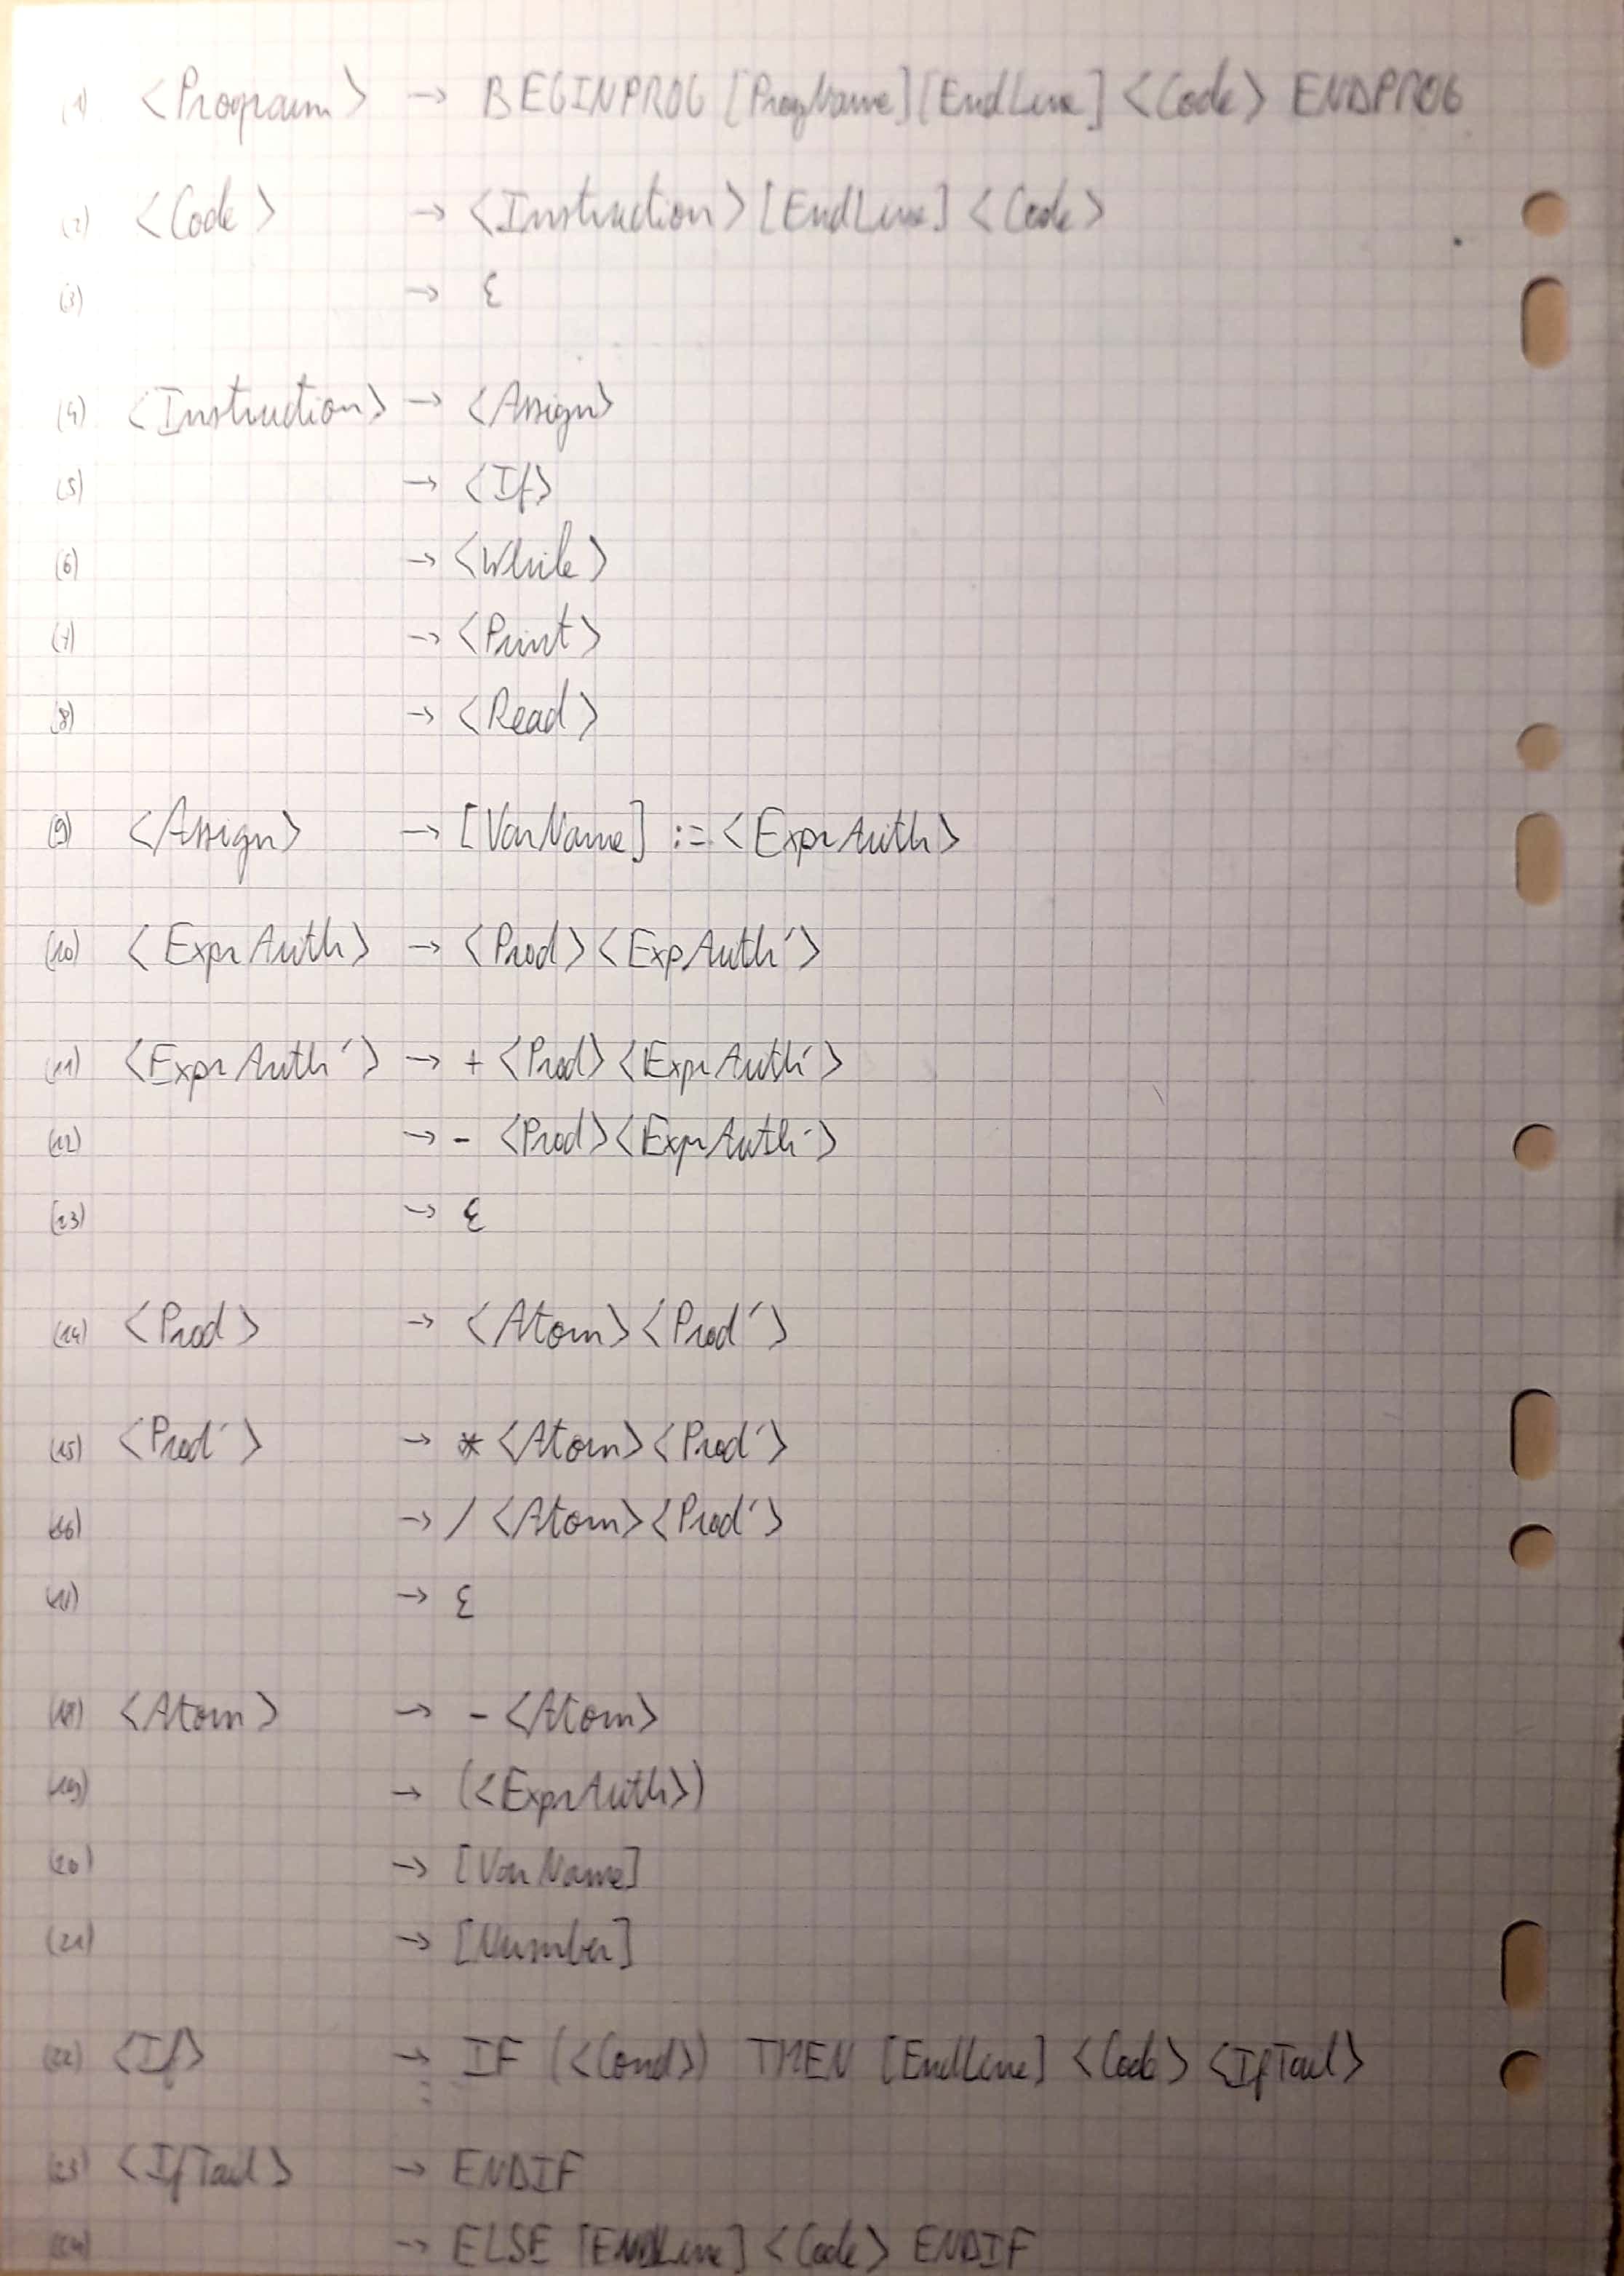 (1) <Program> → BEGINPROG [ProgName][EndLine] <Code> ENDPROG
(2) <Code> → <Instruction>[EndLine] <Code>
(3) → ε
(4) <Instruction> → <Assign>
(5) → <If>
(6) → <While>
(7) → <Print>
(8) → <Read>
(9) <Assign> → [VarName] := <ExprArith>
(10) <ExprArith> → <Prod><ExpArith'>
(11) <ExprArith'> → + <Prod><ExprArith'>
(12) → - <Prod><ExprArith'>
(13) → ε
(14) <Prod> → <Atom><Prod'>
(15) <Prod'> → * <Atom><Prod'>
(16) → / <Atom><Prod'>
(17) → ε
(18) <Atom> → - <Atom>
(19) → (<ExprArith>)
(20) → [VarName]
(21) → [Number]
(22) <If> → IF (<Cond>) THEN [EndLine] <Code> <IfTail>
(23) <IfTail> → ENDIF
(24) → ELSE [ENDLine] <Code> ENDIF